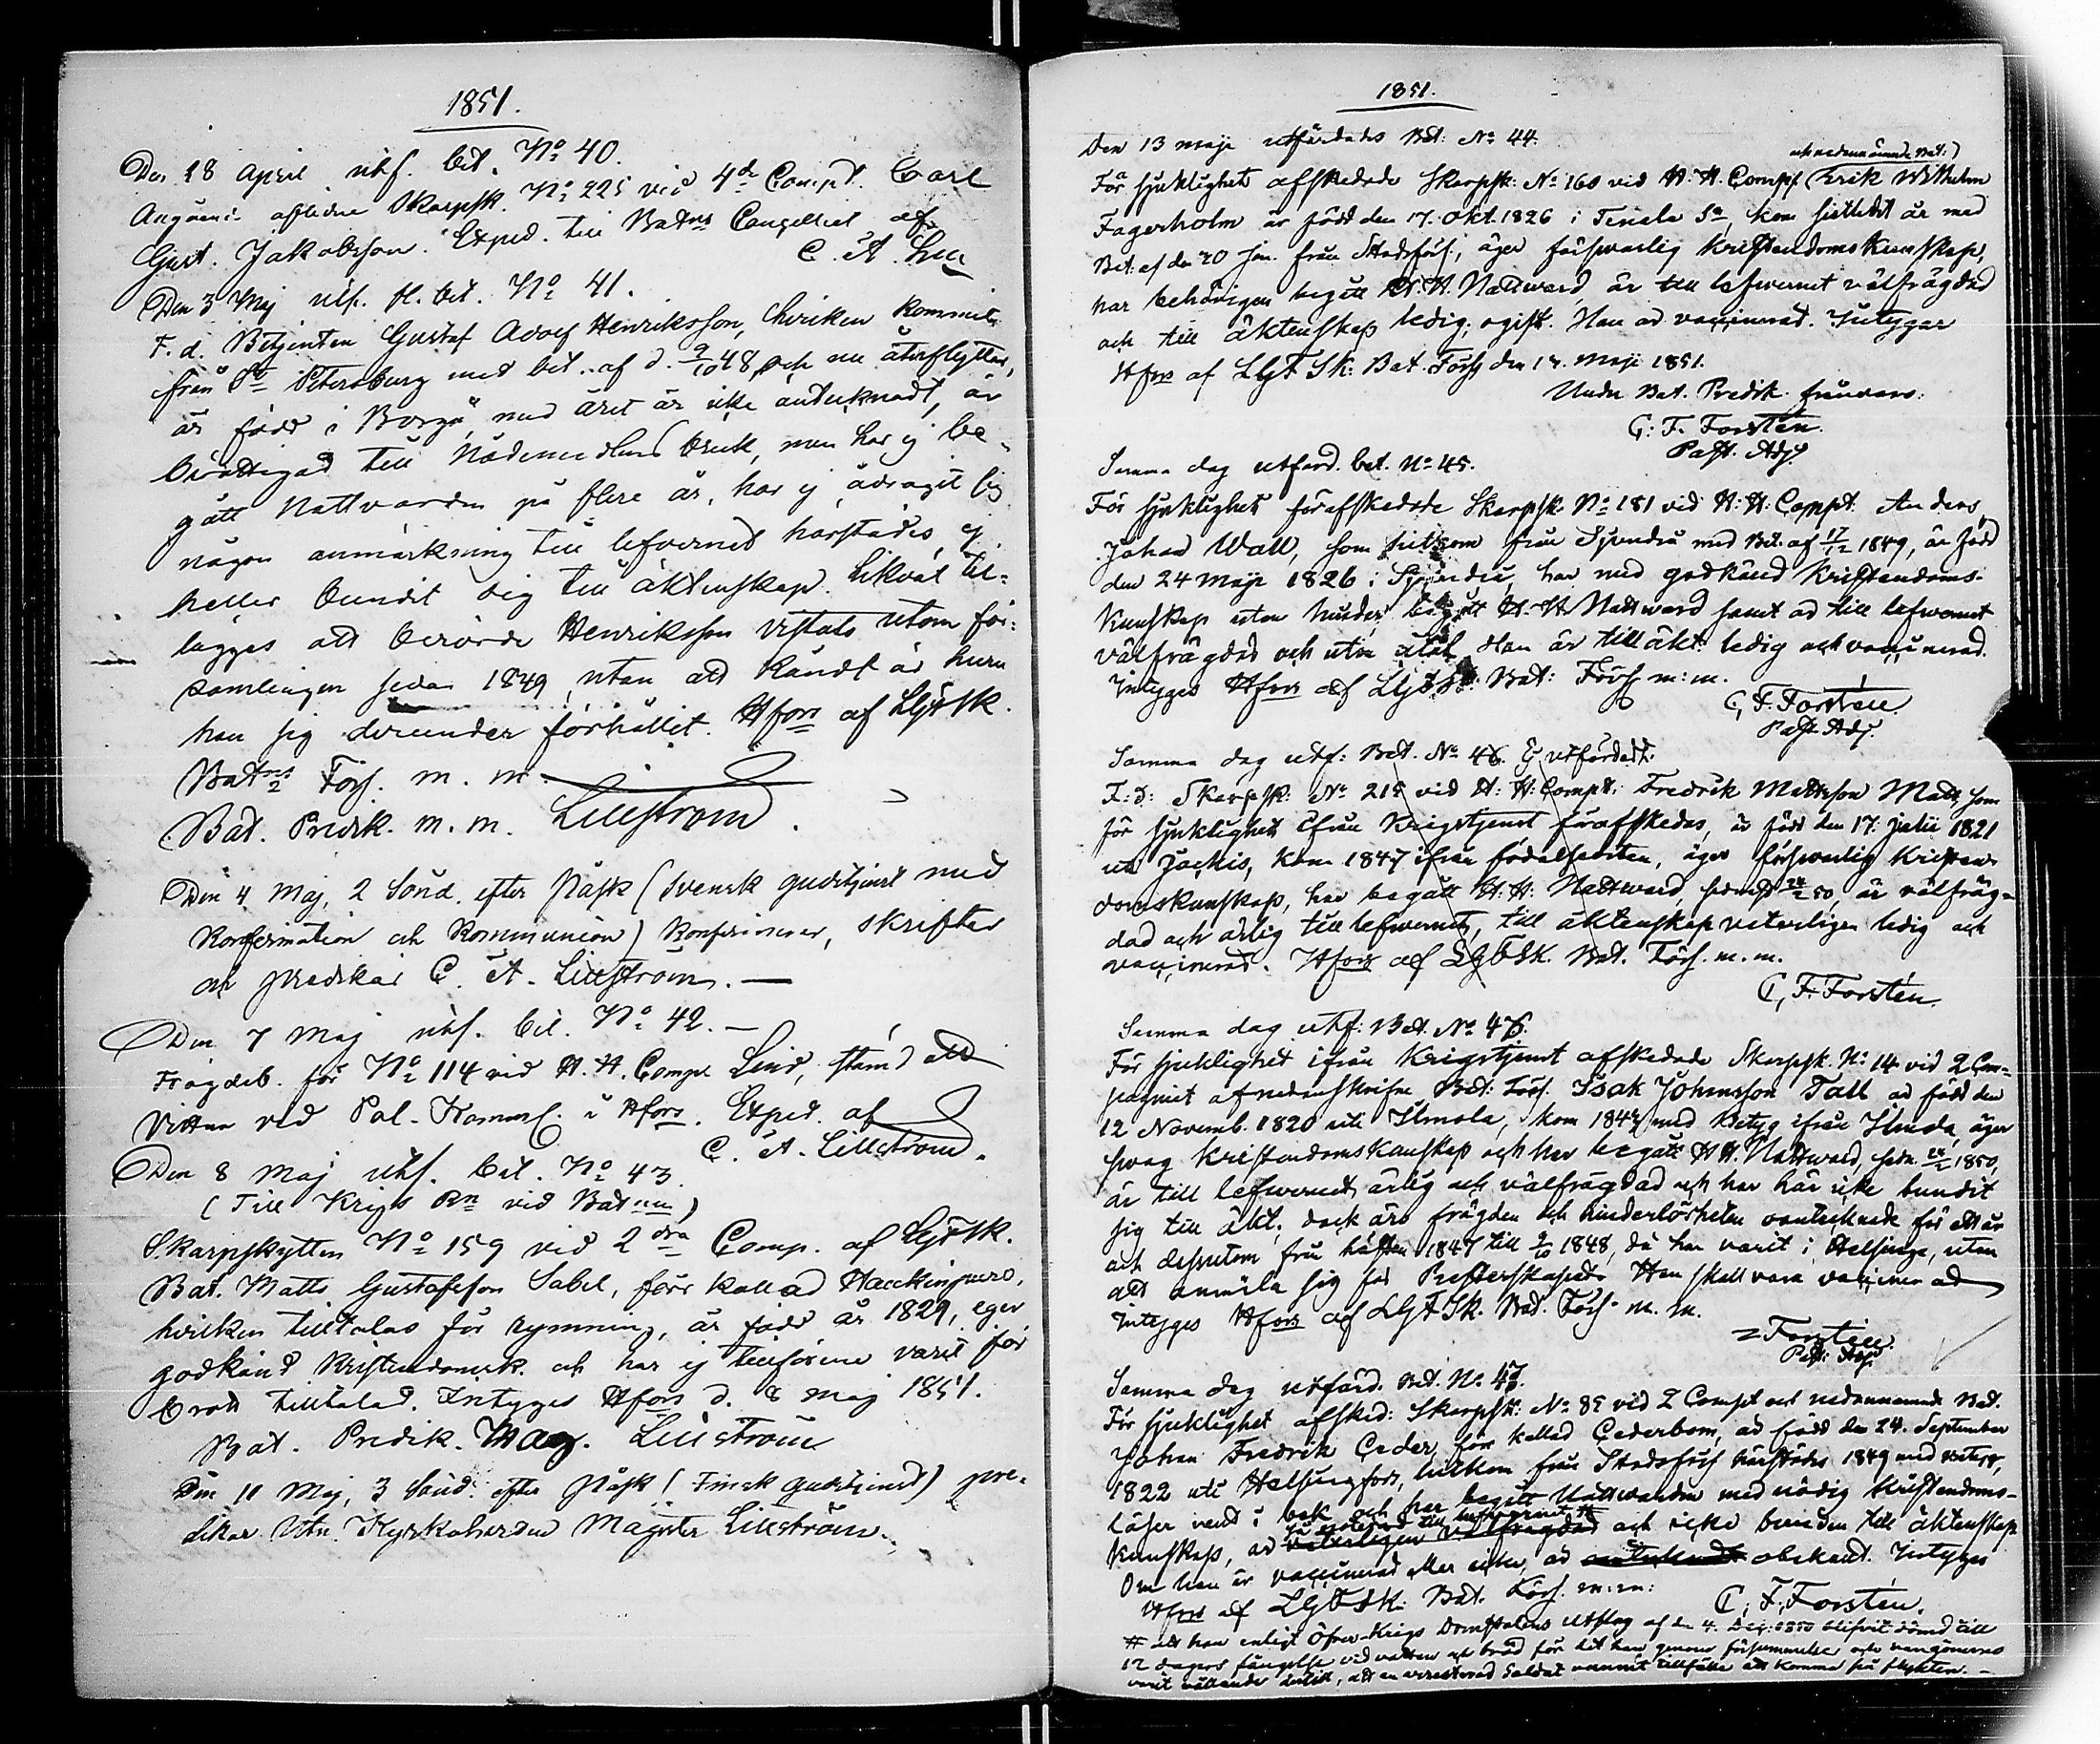 1851.
Den 28 April utf. bet. No 40.
Angående aflidne Skarpsk. No 225 vid 4de Comp. Carl
Gust. Jakobsson. Exped. till Batns Cancelliet af
C. A. Lm
Den 3 Maj utf. fl. bet. No 41.
F. d. Betjenten Gustaf Adolf Henriksson, hvilken kommit
från St Petersburg med bet. af d. 9/10 48, och nu återflyttar,
är född i Borgå, men året är icke antecknadt, är
berättigad till Nådemedlens bruk, men har ej be-
gått Nattvarden på flere år, har ej ådragit sig
någon anmärkning till lefvernet härstädes, ej
heller bundit sig till äktenskap. Likväl til-
lägges att berörde Henriksson vistats utom för-
samlingen sedan 1849, utan att kändt är huru
han sig derunder förhållit. Hfors af LgfSk.
Batns Förs. m. m.
Bat. Predik. m. m. Lillström.
Den 4 Maj, 2 Sönd. efter Påsk (Svensk gudstjenst med
Konfirmation och Kommunion) Konfirmerar, skriftar
och predikar C. A. Lillström. —
Den 7 Maj utf. bet. No 42. —
Frägdeb. för No 114 vid H. H. Comp. Lind, stämd att
Vittna vid Pol. Kammf. i Hfors. Exped. af
C. A. Lillström.
Den 8 Maj utf. bet. No 43.
(Till Krigs Rn vid Batnen)
Skarpskytten No 159 vid 2dra Comp. af LgfSk.
Bat. Matts Gustafsson Sabel, förr kallad Haekinpuro,
hvilken tilltalas för rymning, är född år 1829, eger
godkänd Kristendomsk. och har ej tillförene varit för
brott tilltalad. Intygas Hfors d. 8 Maj 1851.
Bat. Predik. Mag. Lillström
Den 11 Maj, 3 Sönd. efter Påsk (Finsk gudstjenst) pre-
dikar Utn. Kyrkoherden Magister Lillström.
1851.
Den 13 maji utfärdades Bet. No 44.
och nedannämnde Bat.)
För sjuklighet afskedade Skarpsk. No 160 vid H. H. Comp. Erik Wilhelm
Fagerholm är född den 17. Okt. 1826 i Tenala Sn, kom sistledet år med
Bet. af den 20 Jan. från Stadsförs., äger försvarlig kristendomskunskap,
har behörigen begått H. H. Nattvard, är till lefvernet välfrägdad
och till äktenskap ledig, ogift. Han är vaccinerad. Intygar
Hfors af LgfSk. Bat. Förs. den 13. Maji 1851.
Under Bat. Predik. frånvaro:
C. F. Forstén.
Past. Adj.
Samma dag utfärd. bet. No 45.
För sjuklighet förafskedade Skarpsk. No 181 vid H. H. Comp. Anders
Johan Wall, som hitkom från Sjundeå med Bet. af 17/12 1849, är född
den 24 Maji 1826 i Sjundeå, har med godkänd Kristendoms-
kunskap utan hinder begått H. H. Nattvard samt är till lefvernet
välfrägdad och utan Han är till äkt. ledig och vaccinerad.
Intygas Hfors af LgfSk. Bat. Förs. m. m.
C. F. Forstén
Past. Adj.
Samma dag utf. Bet. No 46. Ej utfärdadt.
F. d. Skarpsk. No 215 vid H. H. Comp. Fredrik Mattsson Matts, som
för sjuklighet ifrån Krigstjenst förafskedas, är född den 17. Julii 1821
uti Jockis, kom 1847 ifrån födelseorten, äger försvarlig Kristen-
domskunskap, har begått H. H. Nattvard, sednast 24/2 50, är välfräg-
dad och ärlig till lefvernet, till äktenskap veterligen ledig och
vaccinerad. Hfors af LgfSk. Bat. Förs. m. m.
C. F. Forstén.
Samma dag utf. Bet. No 46.
För sjuklighet ifrån Krigstjenst afskedade Skarpsk. No 14 vid 2 Com-
pagniet af nedanskrifne Bat. Förs. Isak Johansson Tall är född den
12 Novemb. 1820 uti Ilmola, kom 1847 med betyg ifrån Ilmola, äger
svag Kristendomskunskap och har begått H. H. Nattvard, sedn. 24/2 1850,
är till lefvernet ärlig och välfrägdad och har här icke bundit
sig till äkt; dock äro frägden och hinderlösheten oantecknade för ett år
och dessutom från hösten 1847 till 9/10 1848, då han varit i Helsinge, utan
att anmäla sig för Presterskapet. Han skall vara vaccinerad
Intygas Hfors af LgfSk. Bat. Förs. m. m.
Forstén.
Past. Adj.
Samma dag utfärd. Bet. No 47.
För sjuklighet afsked. Skarpsk. No 85 vid 2 Comp. och nedannämnde Bat.
Johan Fredrik Ceder, förr kallad Cederbom, är född den 24. September
1822 uti Helsingfors, hitkom från Stadsförs. härstädes 1849 med betyg,
läser rent i bok och har begått Nattvarden med nödig Kristendoms-
till lefvernet #
kunskap, är veterligen välfrägdad och icke bunden till äktenskap
Om han är vaccinerad eller icke, är obekant. Intygas
Hfors af LgfSk. Bat. Förs. m. m.
C. F. Forstén.
# att han enligt Öfver-Krigs Domstolens Utslag af den 4. Dec. 1850 blifvit dömd till
12 dagars fängelse vid vatten och bröd för det han genom försummelse och
varit vållande dertill, att en arresterad Soldat vunnit tillfälle att komma på flykten. —